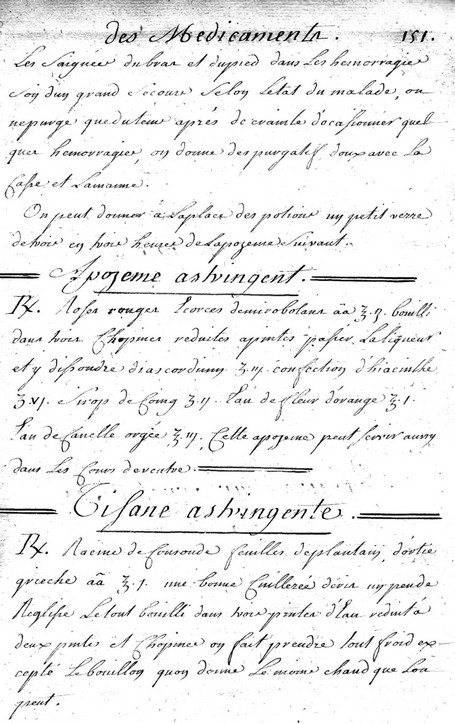 des Medicaments. 151.
Les Saignée dubras et dupied dans Les hemorragie
Son dun grand Secours Selon Letat du malade, on
nepurge quedutems aprés de crainte d'ocasionner quel
que hemorragie, on donne des purgatif doux avec La
Casse et Lamanne.
On peut donner á Laplace des potions un petit verre
detrois en trois heures de Lapozeme Suivant.
Apozeme astringent.
℞. Roses rouges Ecorces demirobolans āā ʒ.ij. bouilli
dans trois Chopines reduites apintes passer La liqueur
et y dissoudre diascordium ʒ.iij confection d'hiacinthe
ʒ.vj. Sirop de Coing ℥.ij. Eau de fleur d'orange ℥.j.
Eau de Canelle orgée ℥.iij. Cette apozeme peut servir aussy
dans Les Cours deventre.
Tisane astringente.
℞. Racine de Consoude feuilles deplantain, d'ortie
griéche āā ℥.j. une bonne Cuillerée deris un peu de
Reglisse Le tout bouilli dans trois pintes d'Eau reduit a
deux pintes et Chopine on fait prendre tout froid ex-
cepté Le bouillon quon donne Le moins chaud que Lon
peut.